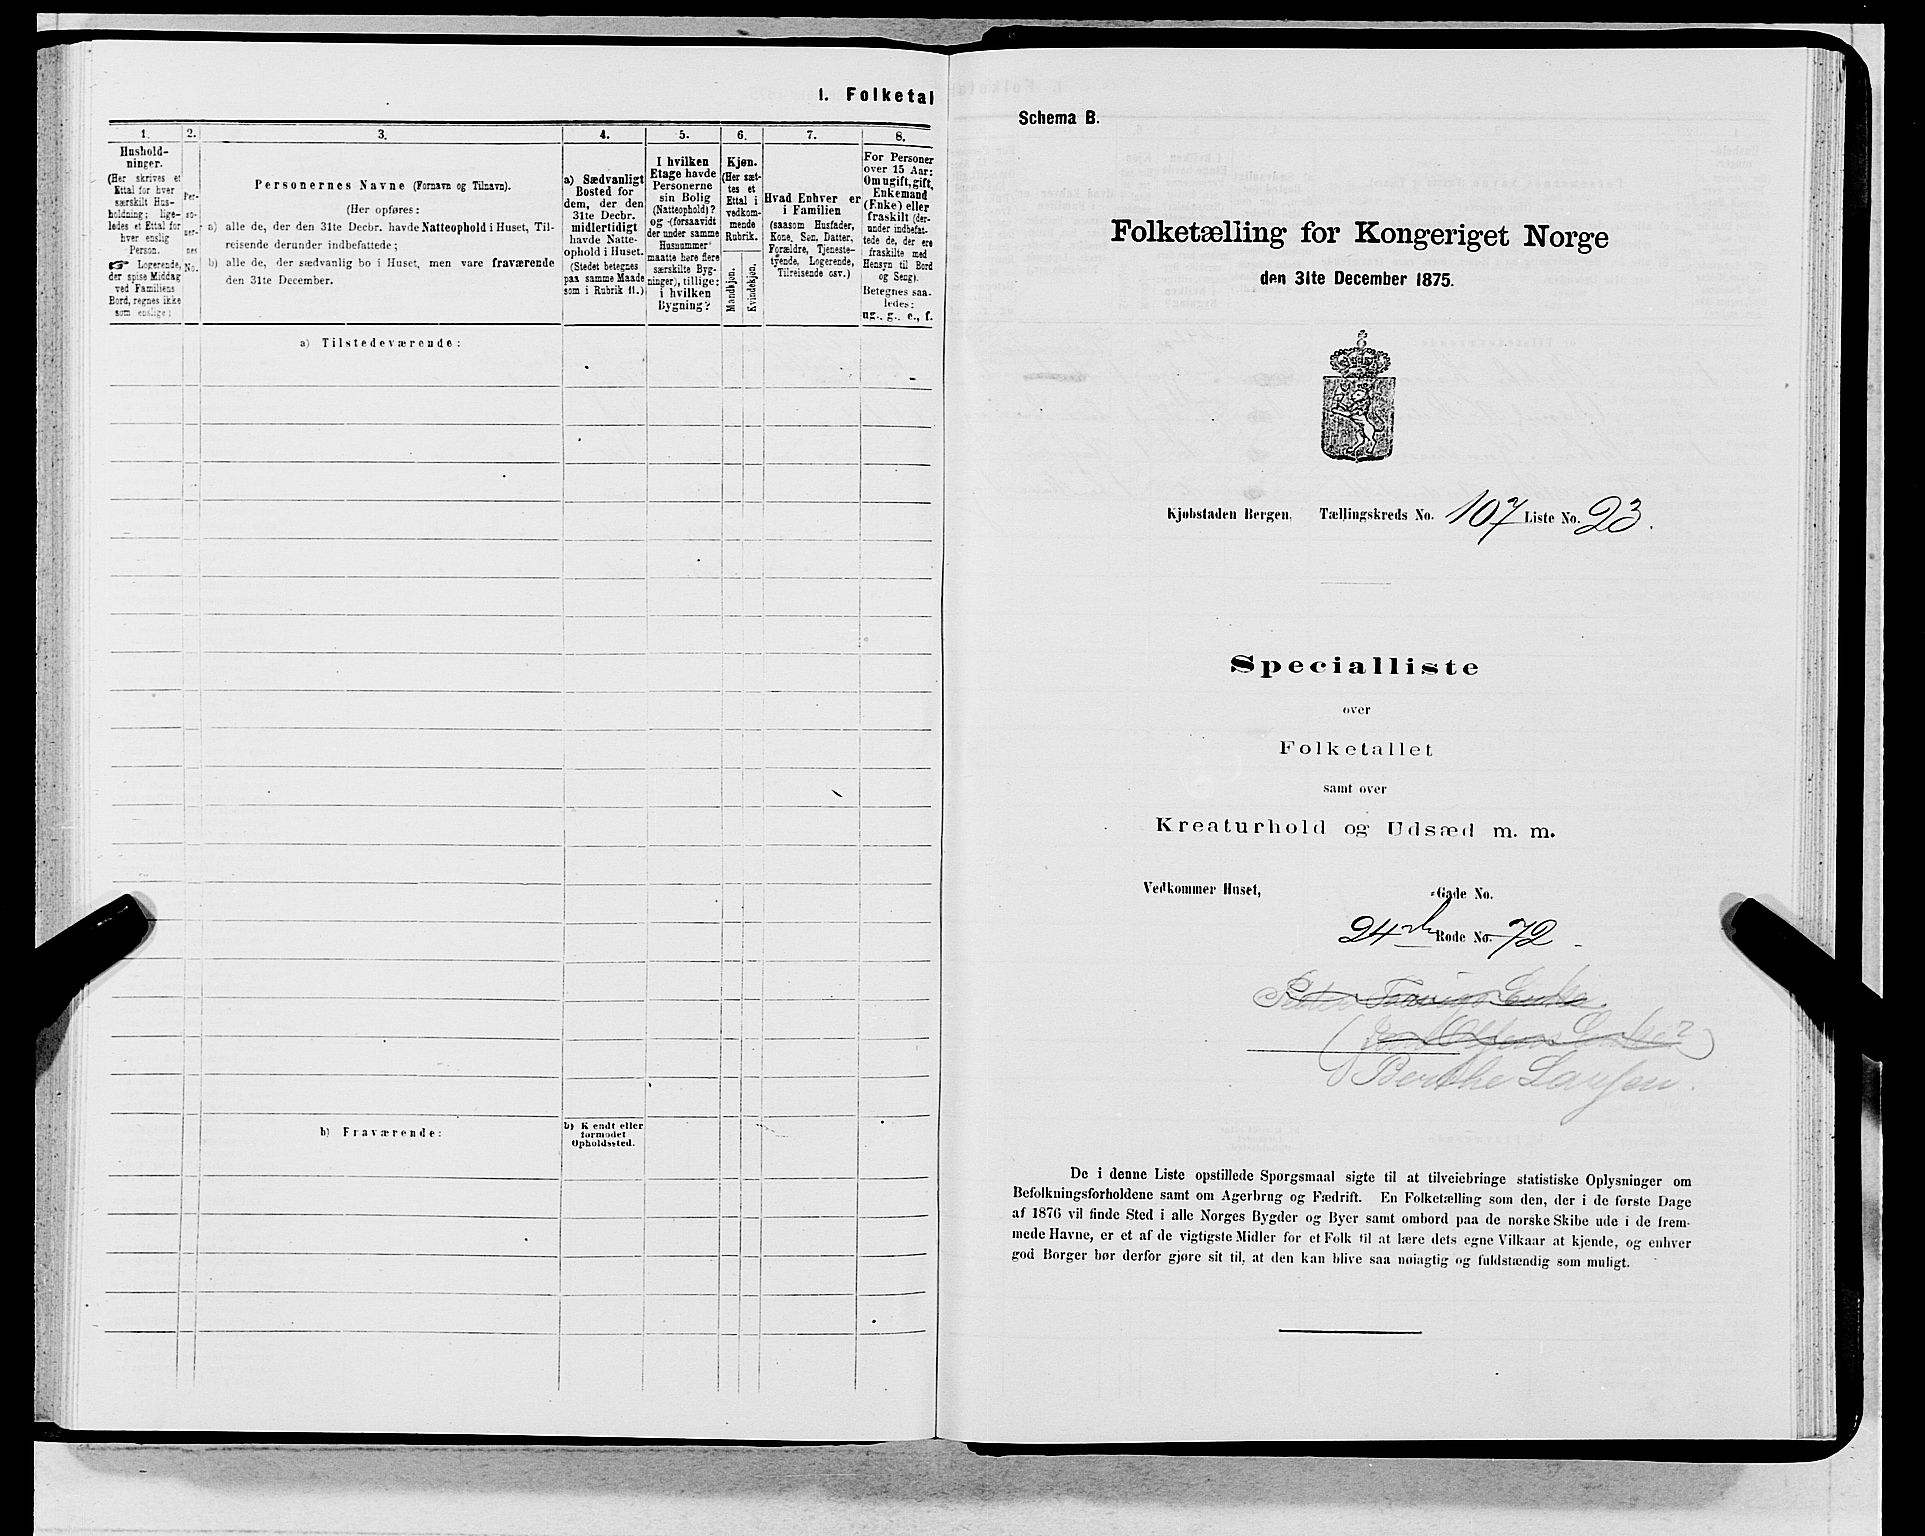 1. Folketal
1.
Hushold-
ninger.
(Her skrives et
Ettal for hver
særskilt Hus-
holdning; lige-
ledes et Ettal for
hver enslig
Person.
☞ Logerende,
der spise Middag
ved Familiens
Bord, regnes ikke
som enslige;
2.
Per-
so-
ner-
nes
No.
3.
Personernes Navne (Fornavn og Tilnavn).
(Her opføres:
a) alle de, der den 31te Decbr. havde Natteophold i Huset, Til-
reisende derunder indbefattede;
b) alle de, der sædvanlig bo i Huset, men vare fraværende
den 31te December.
4.
a) Sædvanligt
Bosted for
dem, der den
31te Decbr.
midlertidigt
havde Natte-
ophold i Huset.
(Stedet betegnes
paa samme Maade
som i Rubrik 11.)
5.
I hvilken
Etage havde
Personerne
sin Bolig
(Natteophold)?
og (forsaavidt
der under samme
Husnummer
maatte høre flere
særskilte Byg-
ninger), tillige:
i hvilken
Bygning?
6.
Kjøn.
(Her sæt-
tes et
Ettal i
vedkom-
mende
Rubrik.
Mandkjøn.
Kvindekjøn.
7.
Hvad Enhver er
i Familien
(saasom Husfader,
Kone, Søn, Datter,
Forældre, Tjeneste-
tyende, Logerende,
Tilreisende osv.)
8.
For Personer
over 15 Aar:
Om ugift, gift,
Enkemand
(Enke) eller
fraskilt (der-
under indbefat-
tede de, der ere
fraskilte med
Hensyn til Bord
og Seng).
Betegnes saa-
ledes:
ug., g., e., f.
a) Tilstedeværende:
b) Fraværende:
b) Kendt eller
formodet
Opholdssted.
Schema B.
Folketælling for Kongeriget Norge
den 31te December 1875.
Kjøbstaden Bergen. Tællingskreds No. 107 Liste No. 23.
Specialliste
over
Folketallet
samt over
Kreaturhold og Udsæd m. m.
Vedkommer Huset, -Gade No.
24de Rode No. 72
Enke
Enke?
Berthe Larsen.
De i denne Liste opstillede Spørgsmaal sigte til at tilveiebringe statistiske Oplysninger om
Befolkningsforholdene samt om Agerbrug og Fædrift. En Folketælling som den, der i de første Dage
af 1876 vil finde Sted i alle Norges Bygder og Byer samt ombord paa de norske Skibe ude i de frem-
mede Havne, er et af de vigtigste Midler for et Folk til at lære dets egne Vilkaar at kjende, og enhver
god Borger bør derfor gjøre sit til, at den kan blive saa nøiagtig og fuldstændig som muligt.